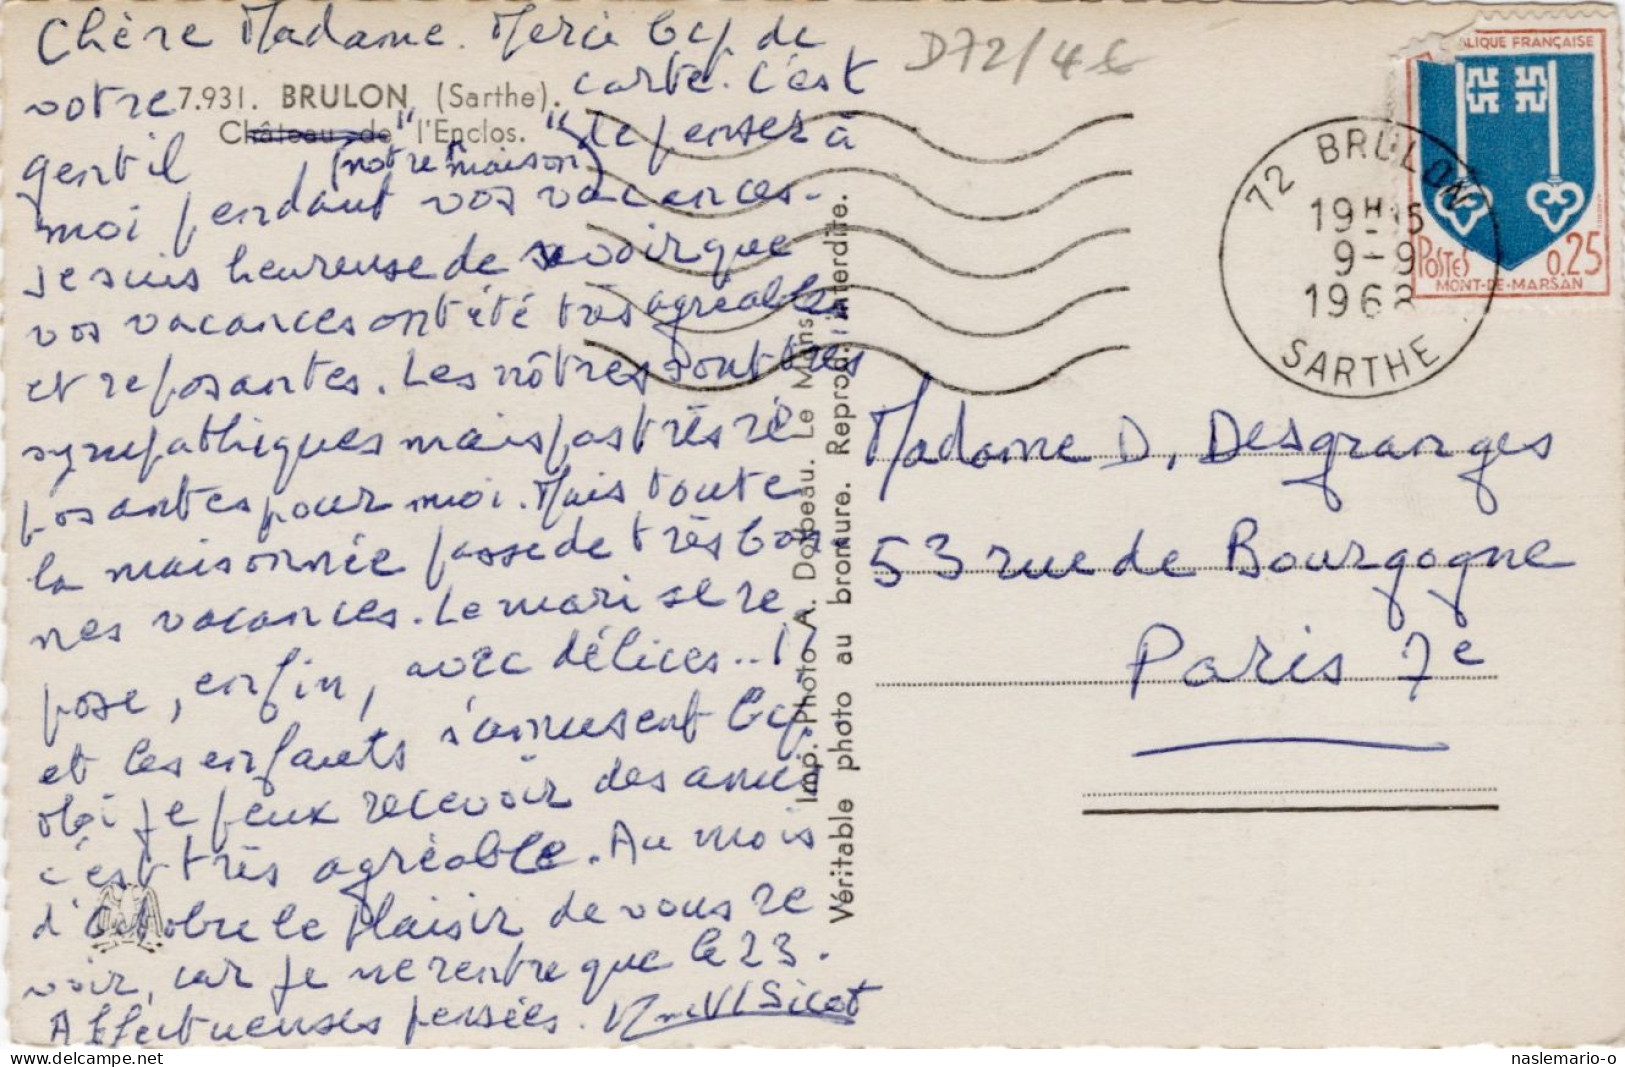 Chère Madame. Merci bcp de
votre carte. C'est
7.931. BRULON (Sarthe).
Château de "l'Enclos."
gentil de penser à
(notre maison)
moi pendant vos vacances.
Je suis heureuse de savoir que
vos vacances ont été très agréables
et reposantes. Les nôtres sont très
sympathiques mais pas très re
posantes pour moi. Mais toute
la maisonnée passe de très bon
nes vacances. Le mari se re
pose, enfin, avec délices..!
et les enfants s'amusent bcp.
Moi je peux recevoir des amis
c'est très agréable. Au mois
d'Octobre le plaisir de vous re
voir, car je ne rentre que le 23.
Affectueuses pensées. Sicot
Imp. Photo A. Dolbeau. Le Mans
Véritable photo au bromure. Reprod. interdite.
D72/4€
RÉPUBLIQUE FRANÇAISE
POSTES 0.25
MONT-DE-MARSAN
72 BRULON
19H15
9-9
1968
SARTHE
Madame D. Desgranges
53 rue de Bourgogne
Paris 7e
naslemario-o